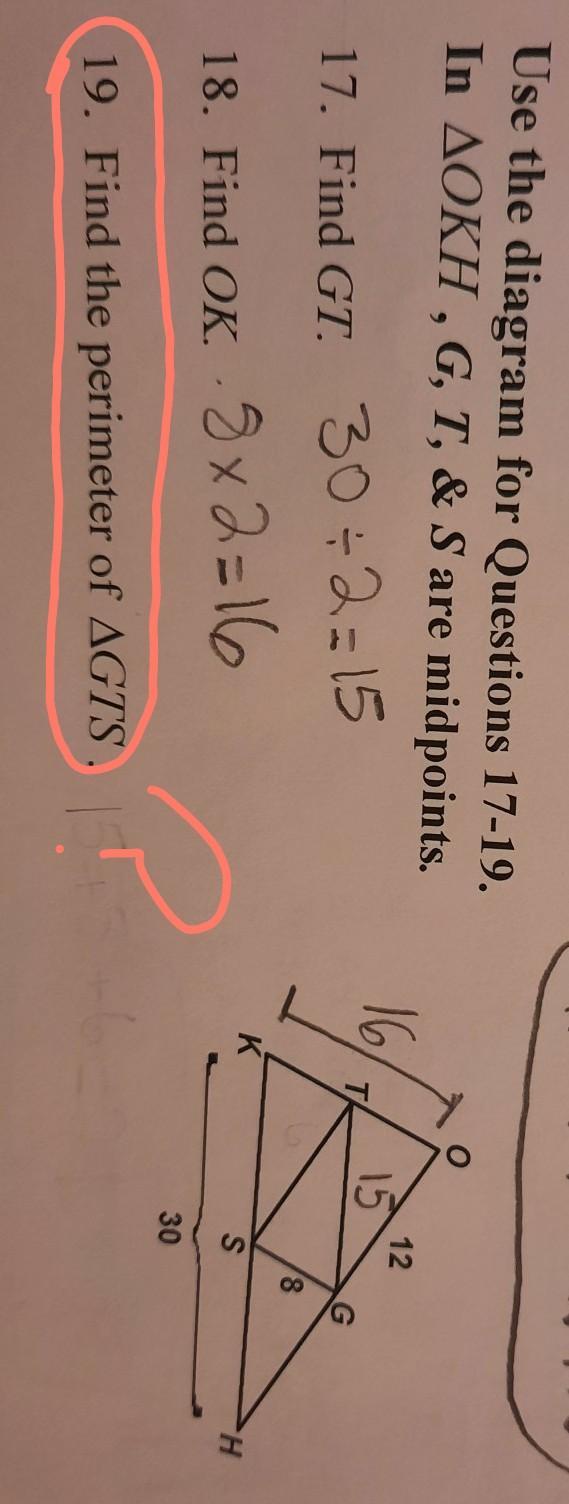 Use the diagram for Questions 17-19.
In ΔOKH , G, T, & S are midpoints.
17. Find GT. 30 ÷ 2 = 15
18. Find OK. 8 x 2 = 16
19. Find the perimeter of ΔGTS. ?
16
O
T
15
12
G
K
S
8
H
30